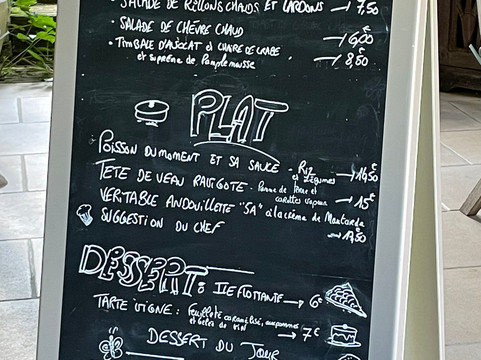 • SALADE DE RILLONS CHAUDS ET LARDONS → 7,50
• SALADE DE CHÈVRE CHAUD → 6,00
• TIMBALE D'AVOCAT & CHAIR DE CRABE
et suprême de Pamplemousse → 8,50
PLAT
POISSON DU MOMENT ET SA SAUCE - Riz
et Légumes → 14,50€
TETE DE VEAU RAVIGOTE - Pomme de terre et
carottes vapeur → 15€
VERITABLE ANDOUILLETTE "5A" à la crème de Moutarde
SUGGESTION DU CHEF → 17,50
DESSERT: ILE FLOTTANTE → 6€
TARTE VIGNE : feuilleté caramélisé, aux pommes
et Gelée de Vin → 7€
DESSERT DU JOUR